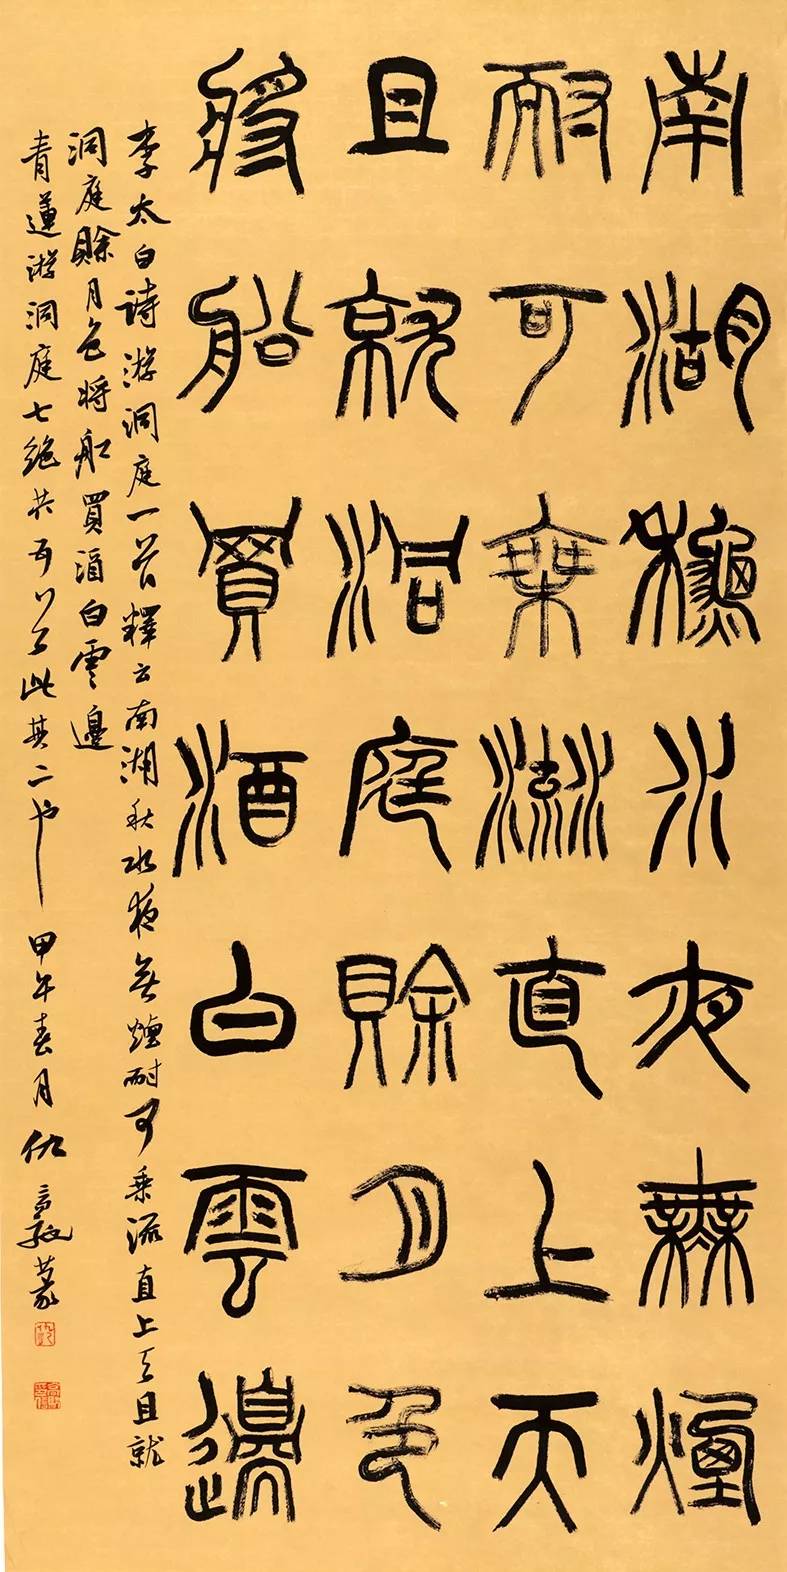 南湖龝水夜無煙
耐可乘流直上天
且就洞庭賒月色
將船買酒白雲邊
李太白詩游洞庭一首釋云南湖秋水夜無煙耐可乘流直上天且就
洞庭賒月色將船買酒白雲邊
青蓮游洞庭七絕共五首此其二也甲午春月仇